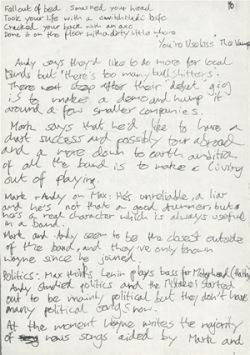 Fell out of bed Smashed your head
Took your life with a
Cracked your back with an axe
Done it on the floor with a dirty little whore
You're Useless The Vamps
Andy says they'd like to do more for local
bands but "there's too many bullshitters".
There next step after their debut 'gig'
is to make a demo and hump it
around a few smaller companies.
Mark says that he'd like to have a
chart success and possibly tour abroad
and a more down to earth ambition
of all the band is to make a living
out of playing.
Mark + Andy on Max: He's unreliable, a liar
and he's not that a good drummer, but
he's a real character which is always useful
in a band.
Mark and Andy seem to be the closest outside
of the band, and they've only known
Wayne since he joined.
Politics: Max thinks Lenin plays bass for Motorhead
Andy studied politics and the started
out to be mainly political but they don't have
many political songs now.
At the moment Wayne writes the majority
of news songs aided by Mark and